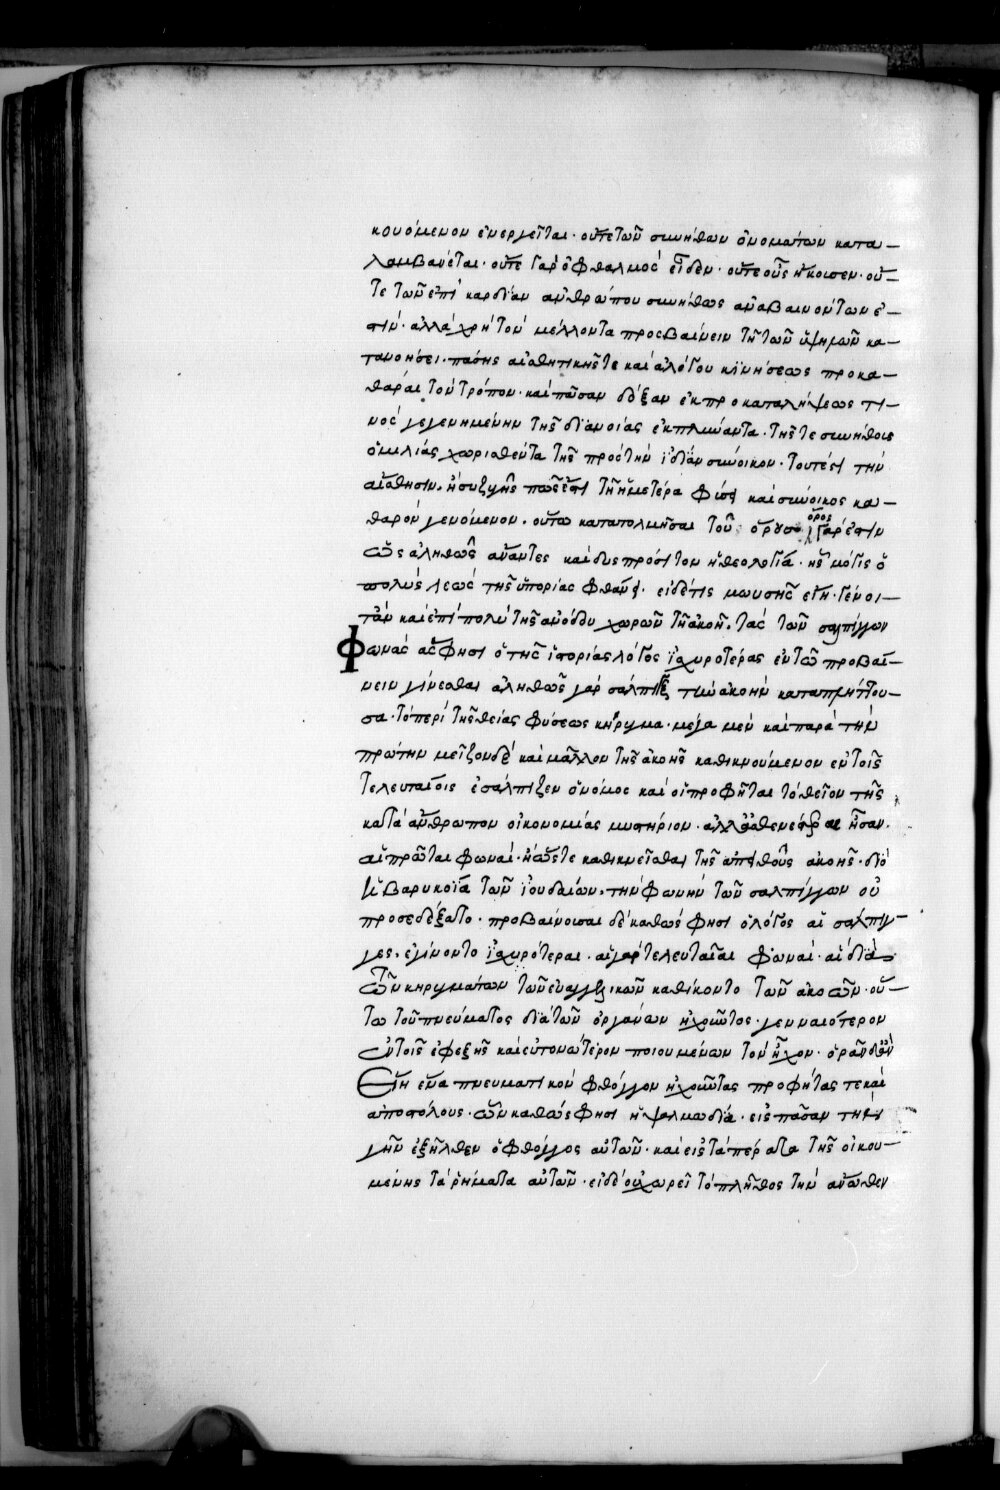 κουόμενον ἐνεργεῖται· οὔτε τῶν συνήθων ὀνομάτων κατα-
λαμβάνεται· οὔτε γὰρ ὀφθαλμὸς εἶδεν· οὔτε οὖς ἤκουσεν· οὔ-
τε τῶν ἐπὶ καρδίαν ἀνθρώπου συνήθως ἀναβαινόντων ἐ-
στίν· ἀλλὰ χρὴ τὸν μέλλοντα προσβαίνειν τῇ τῶν ὑψηλῶν κα-
τανοήσει· πάσης αἰσθητικῆς τε καὶ ἀλόγου κινήσεως προκα-
θᾶραι τὸν τρόπον· καὶ πᾶσαν δόξαν ἐκ προκαταλήψεως τι-
νὸς γεγενημένην τῆς διανοίας ἐκπλύναντα· τῆς τε συνήθους
ὁμιλίας χωρισθέντα τῆς πρὸς τὴν ἰδίαν σύνοικον· τουτέστι τὴν
αἴσθησιν· ἡ συζυγής πως ἐστὶ τῇ ἡμετέρα φύσει καὶ σύνοικος κα-
θαρὸν γενόμενον· οὕτω κατατολμῆσαι τοῦ ὄρους· ὄρος γάρ ἐστιν
ὡς ἀληθῶς ἄναντες καὶ δυσπρόσιτον ἡ θεολογία· ἧς μόγις ὁ
πολὺς λεὼς τῆς ὑπορίας φθάνει· εἰ δέ τις μωυσῆς εἴη· γένοι-
τ' ἂν καὶ ἐπὶ πολὺ τῆς ἀνόδου χωρῶν τῇ ἀκοῇ· τὰς τῶν σαλπίγγων
φωνὰς ἅς φησι ὁ τῆς ἱστορίας λόγος ἰσχυροτέρας ἐν τῶ προβαί-
νειν γίνεσθαι ἀληθῶς γὰρ σάλπιγξ τὴν ἀκοὴν καταπλήττου-
σα· τὸ περὶ τῆς θείας φύσεως κήρυγμα· μέγα μὲν καὶ παρὰ τὴν
πρώτην μεῖζον δὲ καὶ μᾶλλον τῆς ἀκοῆς καθικνούμενον ἐν τοῖς
τελευταίοις ἐσάλπιξεν ὁ νόμος καὶ οἱ προφῆται τὸ θεῖον τῆς
κατὰ ἄνθρωπον οἰκονομίας μυστήριον· ἀλλ' ἀσθενέστεραι ἦσαν·
αἱ πρῶται φωναὶ· ἢ ὥστε καθικνεῖσθαι τῆς ἀπειθοῦς ἀκοῆς· διὸ
ἡ βαρυκοΐα τῶν ἰουδαίων· τὴν φωνὴν τῶν σαλπίγγων οὐ
προσεδέξατο· προβαίνουσαι δὲ καθώς φησι ὁ λόγος αἱ σάλπιγ-
γες· ἐγίνοντο ἰσχυρότεραι· αἱ γὰρ τελευταῖαι φωναὶ· αἱ διὰ
τῶν κηρυγμάτων τῶν εὐαγγελικῶν καθίκοντο τῶν ἀκοῶν· οὕ-
τω τοῦ πνεύματος διὰ τῶν ὀργάνων ἠχοῦντος· γενναιότερον
ἐν τοῖς ἐφεξῆς καὶ εὐτονώτερον ποιουμένων τὸν ἦχον· ὄργανον δ' ἂν
εἴη ἕνα πνευματικὸν φθόγγον ἠχοῦντας προφήτας τε καὶ
ἀποστόλους· ὧν καθώς φησι ἡ ψαλμωδία· εἰς πᾶσαν τὴν
γῆν ἐξῆλθεν ὁ φθόγγος αὐτῶν· καὶ εἰς τὰ πέρατα τῆς οἰκου-
μένης τὰ ῥήματα αὐτῶν· εἰ δ' οὐ χωρεῖ τὸ πλῆθος τὴν ἄνωθεν